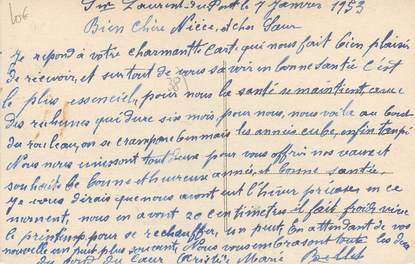 10€
St Laurent du Pont le 7 Janvier 1953
Bien Chère Nièce, et cher Sœur
Je repond à votre charmantte Cart, qui nous fait bien plaisir
de recevoir, et surtout de vous savoir en bonne santée C'est
le plus essenciel, pour nous la santé se maintient, avec
des rhumes qui dure six mois pour nous, nous voila au bout
du rouleau, on se cramponne mais les années
Nous nous unissont tout deux pour vous offrir nos vœux et
souhaits de bonne et heureuse année, et bonne santée
Je vous dirais que nous avons eut l'hiver précoce en ce
moment, nous en avont 20 centimètres il fait froid vive
le printemps pour se rechauffer, un peut En attendant de vos
nouvelle un peut plus souvant, Nous vous embrasont toute les deux
du fond du Cœur Marie Bellet